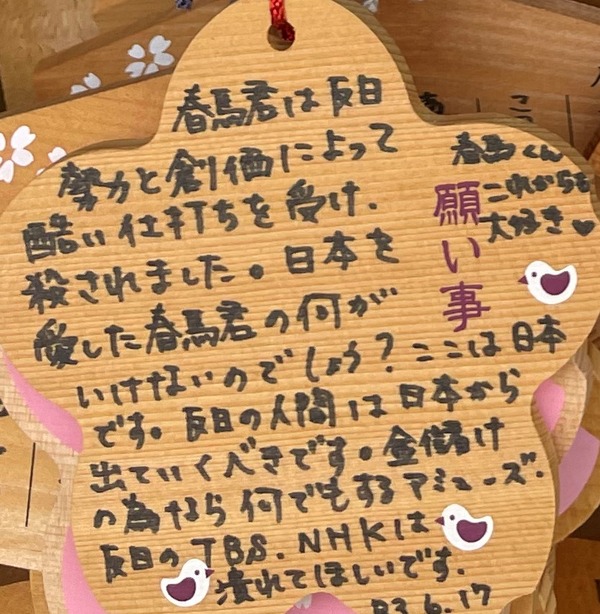 春馬君は反日
勢力と創価によって
酷い仕打ちを受け、
殺されました。日本を
愛した春馬君の何が
いけないのでしょう？ここは日本
です。反日の人間は日本から
出ていくべきです。金儲け
の為なら何でもするアミューズ、
反日のTBS、NHKは
潰れてほしいです。
R3.6.17
願い事
春馬くん
これからも
大好き♥